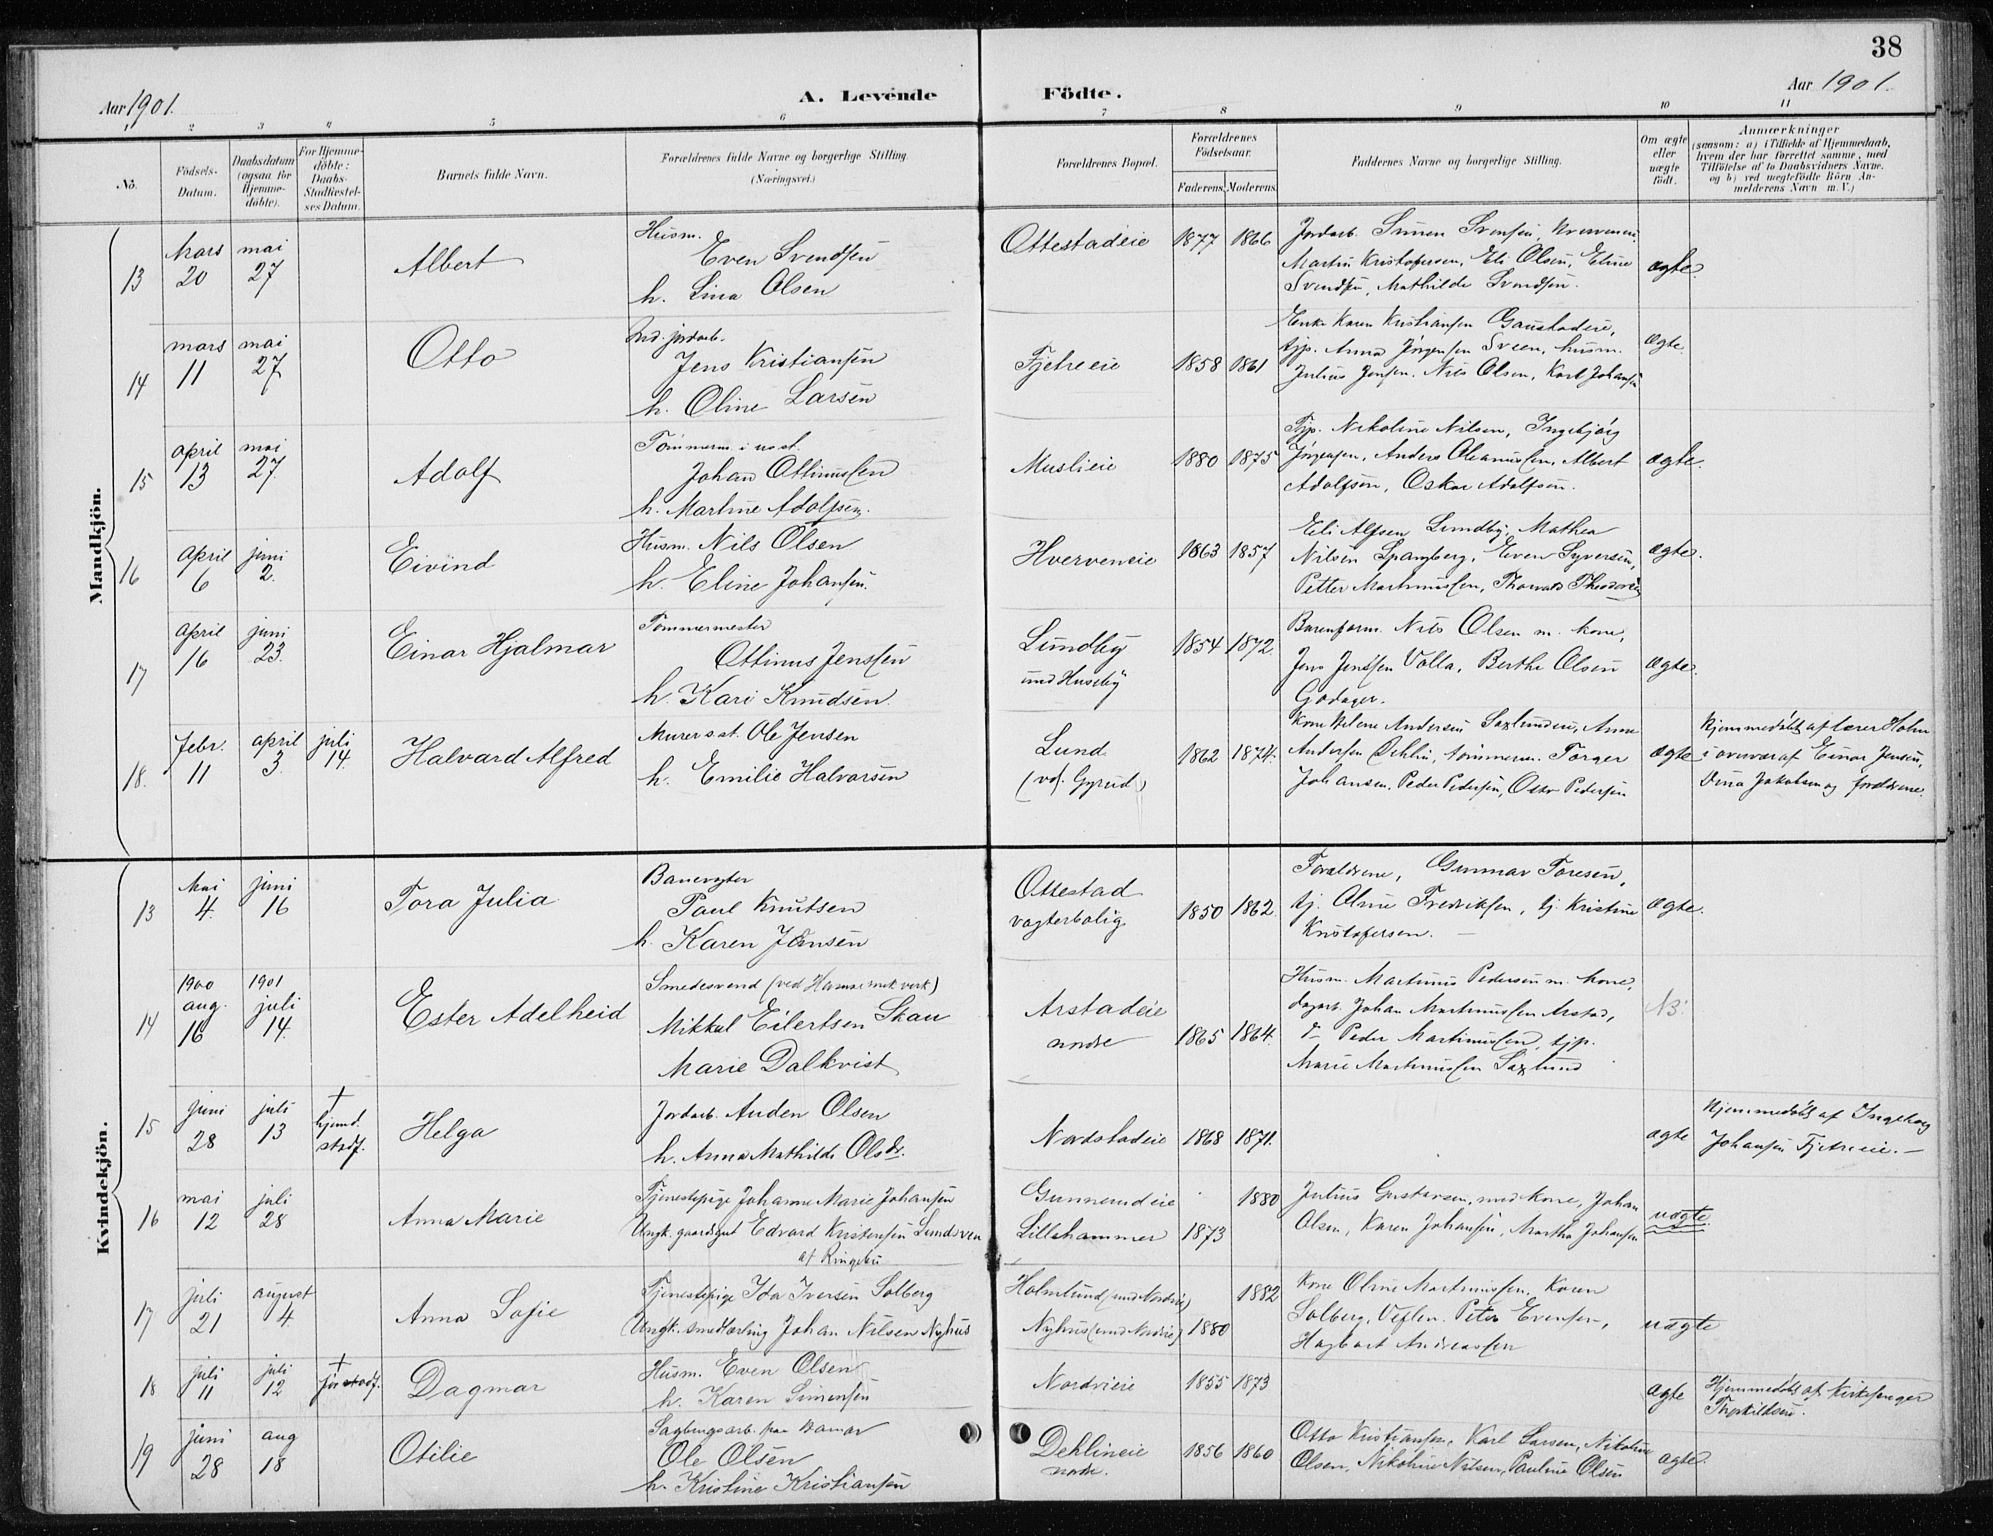 38
Aar 1901.
A. Levende Födte.
Aar 1901.
1 2 3 4 5 6 7 8 9 10 11
No.
Födsels-Datum.
Daabsdatum (ogsaa for Hjemme-döbte).
For Hjemme-döbte: Daabs-Stadfæstel-ses Datum.
Barnets fulde Navn.
Forældrenes fulde Navne og borgerlige Stilling. (Næringsvei.)
Forældrenes Bopæl.
Forældrenes Födselsaar.
Faderens. Moderens.
Faddernes Navne og borgerlige Stilling.
Om ægte eller uægte födt.
Anmærkninger
(saasom: a) i Tilfælde af Hjemmedaab,
hvem der har forrettet samme, med
Tilföielse af to Daabsvidners Navne.
og b) ved uegtefödte Börn An-
melderens Navn m. V.)
Mandkjön.
13 Mars 20 mai 27 Albert
Husm. Even Svendsen
h. Lina Olsen
Ottestadeie 1877 1866
Jordarb. Simen Svensen,
Martin Kristofersen, Eli Olsen, Eline
Svendsen, Mathilde Svendsen.
ægte.
14 mars 11 mai 27 Otto
Ind. jordarb.
Jens Kristiansen
h. Oline Larsen
Fjetreeie 1858 1861
Enke Karen Kristiansen Gaustadeie,
tjp. Anna Jörgensen Sveen, husm.
Julius Jensen, Nils Olsen, Karl Johansen
ægte.
15 april 13 mai 27. Adolf
Tømmerm. i
Johan Ottinussen
h. Martine Adolfsen.
Muslieie 1880 1875
Tjp. Nikoline Nilsen, Ingebjörg
Jörgensen, Anders Oleanussen, Albert
Adolfsen, Oskar Adolfsen.
ægte.
16 April 6 juni 2. Eivind
Husm. Nils Olsen
h. Eline Johansen.
Hverveneie 1863 1857
Eli Alfsen Lundby, Mathea
Nilsen Spangberg, Even Syversen,
Petter Martinussen, Thorvald
ægte.
17 April 16 juni 23. Einar Hjalmar
Tømmermester
Ottinus Jenssen
h. Kari Knudsen.
Lundby
und Huseby
1854 1872.
Nils Olsen m. kone,
Jens Jenssen Volla, Berthe Olsen
Godager.
ægte.
18. Febr. 11 april 3. juli 14. Halvard Alfred
Murersst. Ole Jensen
h. Emilie Halvorsen
Lund
(vd. Gyrud)
1862 1874.
Kone Helene Andersen Saxlundeie, Anne
Andersen Dehlin, tömmerm. Torger
Johansen, Peder Pedersen, Otto Pedersen
ægte
Hjemmedöbt af lærer Holm
i overvær af Einar Jensen,
Dina Jakobsen og forældrene.
Kvindekjön.
13 Mai 4. juni 16 Tora Julia
Banevogter
Paul Knutsen
h. Karen Jensen
Ottestad
vogterbolig
1850 1862.
Forældrene, Gunnar Toresen,
tj. Oline Fredriksen, tj. Kristine
Kristofersen. —
ægte.
14 1900 aug. 16 1901 juli 14. Ester Adelheid
Smedesvend (ved
Mikkel Eilertsen Skau
Marie Dalkvist
Arstadeie
nodre
1865 1864.
Husm. Martinus Pedersen m. kone,
dagarb. Johan Martinussen Arstad,
Peder Martinussen, tjp.
Marie Martinussen Saxlund
N3.
15 juni 28 juli 13 † hjemd. stadf. Helga
Jordarb. Auden Olsen
h. Anna Mathilde Olsdr.
Nordstadeie 1868 1871.
ægte
Hjemmedöbt af Ingeborg
Johansen Fjetreeie. —
16 mai 12 juli 28 Anna Marie
Tjenestepige Johanne Marie Johansen
Ungk. gaardgut Edvard Kristensen Lundsveen
af Ringebu
Gunnerudeie 1880
Lillehammer 1873
Julius Gustavsen, med kone, Johan
Olsen, Karen Johansen, Martha Johansen
uægte.
17 juli 21 august 4. Anna Sofie
Tjenestepige Ida Iversen Solberg
Ungk. smedlærling Johan Nilsen Nyhus
Holmlund (und Nordvie) 1882
Nyhus (und Nordvie) 1880
Kone Oline Martinussen, Karen
Solberg, Veflen. Peter Evensen,
Hagbart Andreassen
uægte
18 juli 11 juli 12 † för stadf. Dagmar
Husm. Even Olsen
h. Karen Simensen
Nordvieie 1855 1873
ægte
Hjemmedöbt af kirkesanger
Thorkildsen.
19 juni 28 aug 18 Otilie
Sagbrugsarb. paa Hamar
Ole Olsen
h. Kristine Kristiansen
Dehlineie
nodre.
1856 1860
Otto Kristiansen, Karl Larsen, Nikoline
Olsen, Nikoline Nilsen, Pauline Olsen
ægte.